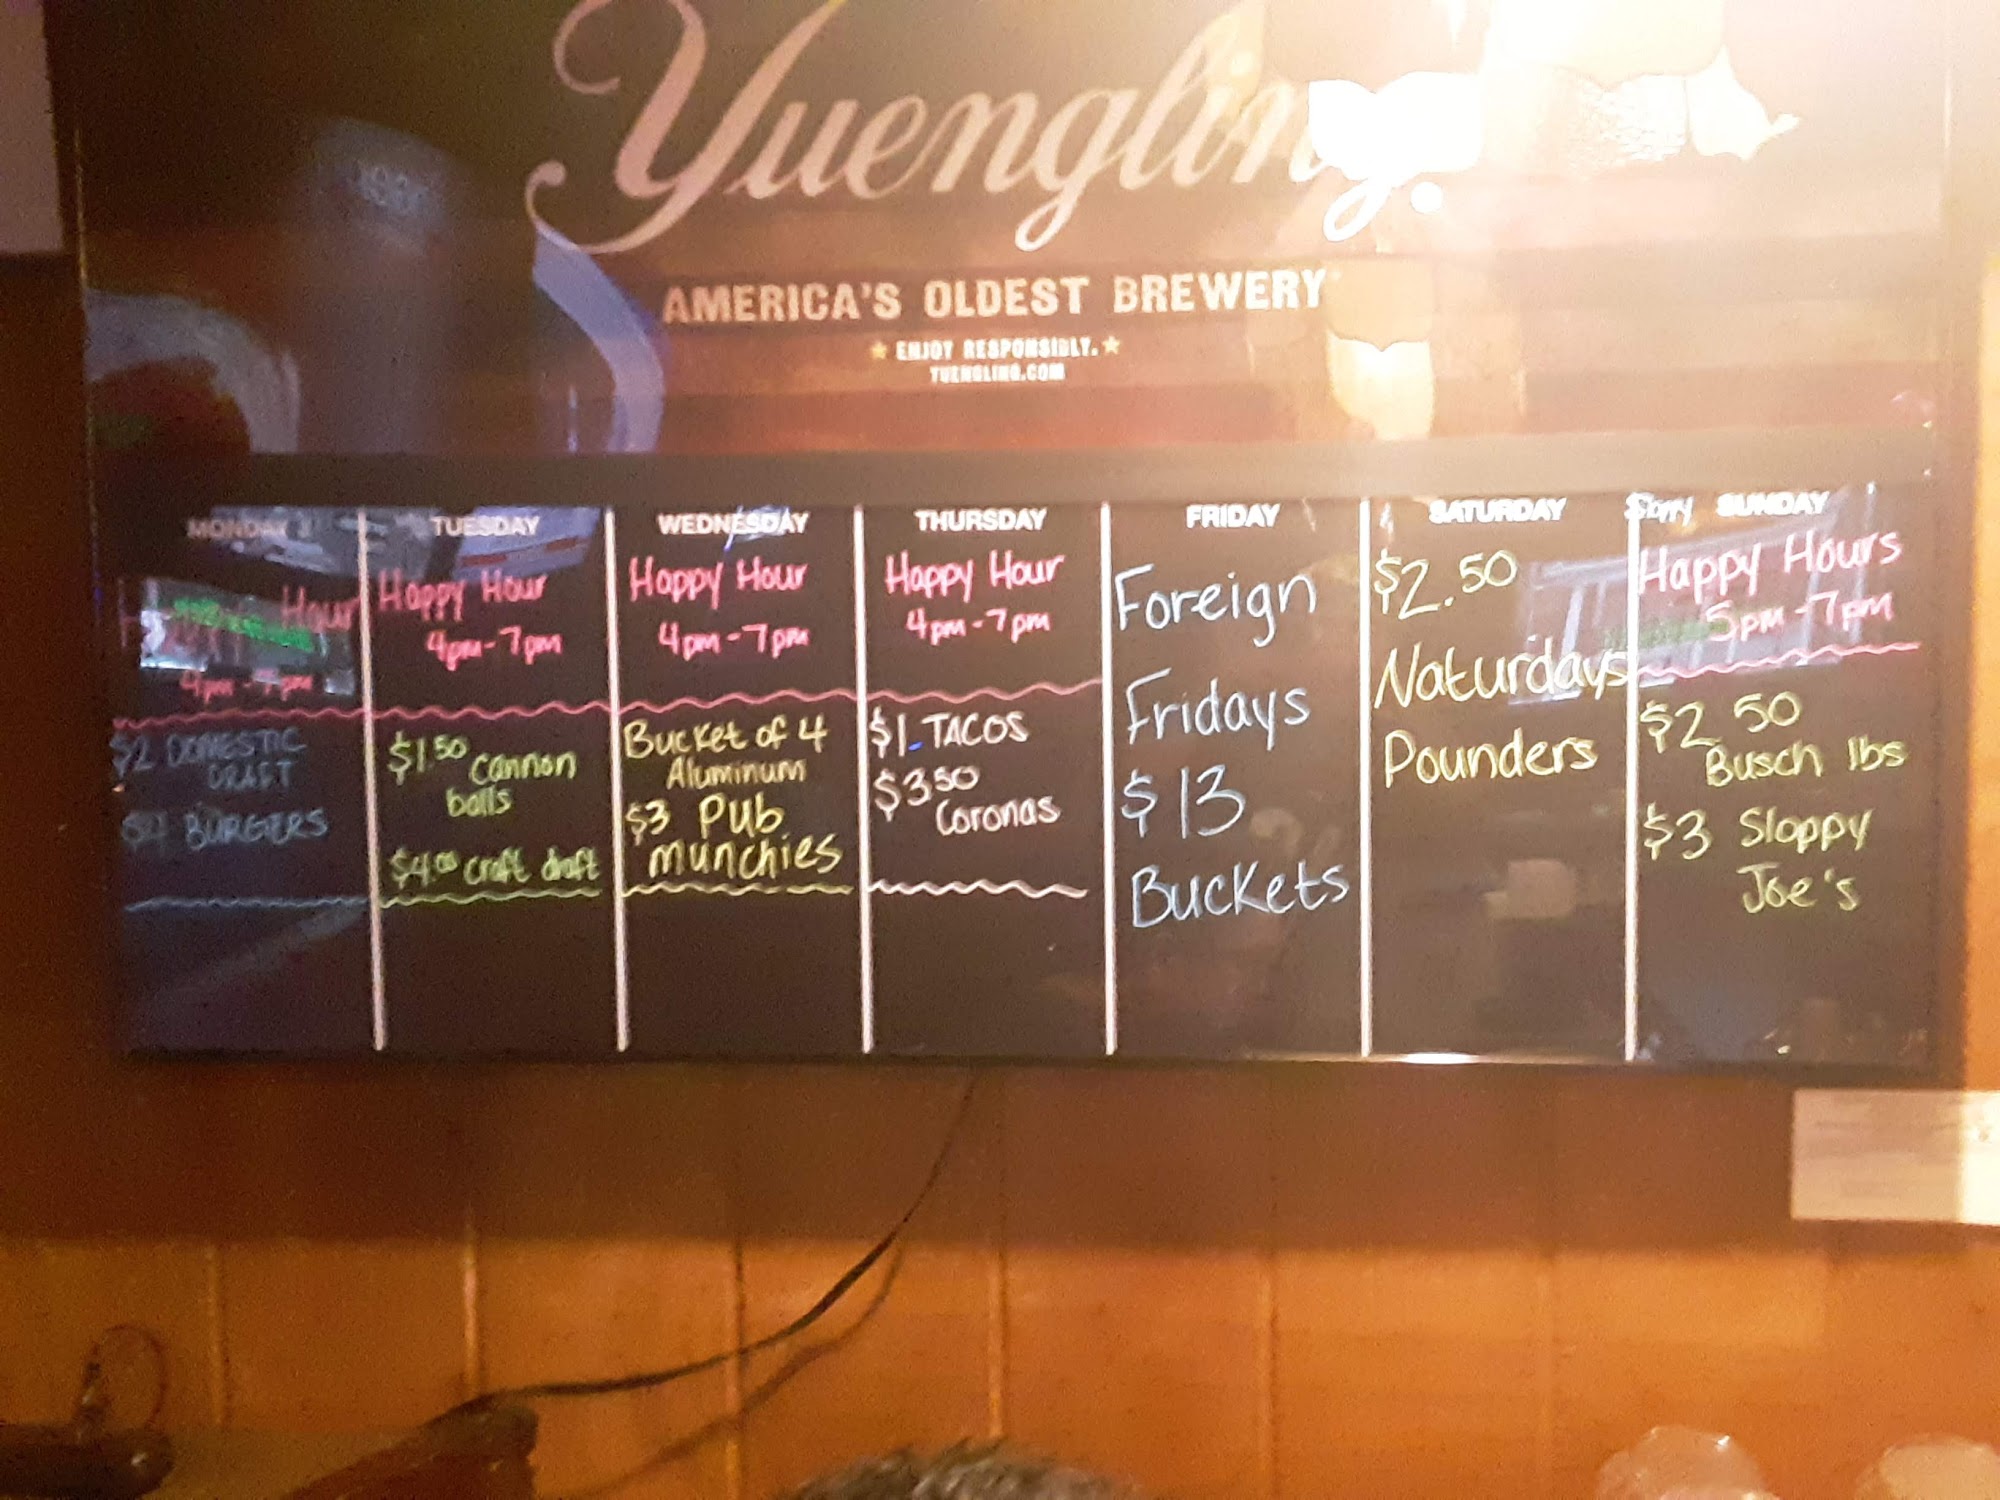 Yuengling.
AMERICA'S OLDEST BREWERY
ENJOY RESPONSIBLY.
YUENGLING.COM
MONDAY
Hour
4pm-7pm
$2 DOMESTIC
DRAFT
$4 BURGERS
TUESDAY
Happy Hour
4pm-7pm
$1.50 Cannon
balls
$4.00 craft draft
WEDNESDAY
Happy Hour
4pm-7pm
Bucket of 4
Aluminum
$3 Pub
munchies
THURSDAY
Happy Hour
4pm-7pm
$1 TACOS
$3.50
Coronas
FRIDAY
Foreign
Fridays
$13
Buckets
SATURDAY
$2.50
Naturdays
Pounders
SUNDAY
Happy Hours
5pm-7pm
$2.50
Busch lbs
$3 Sloppy
Joe's